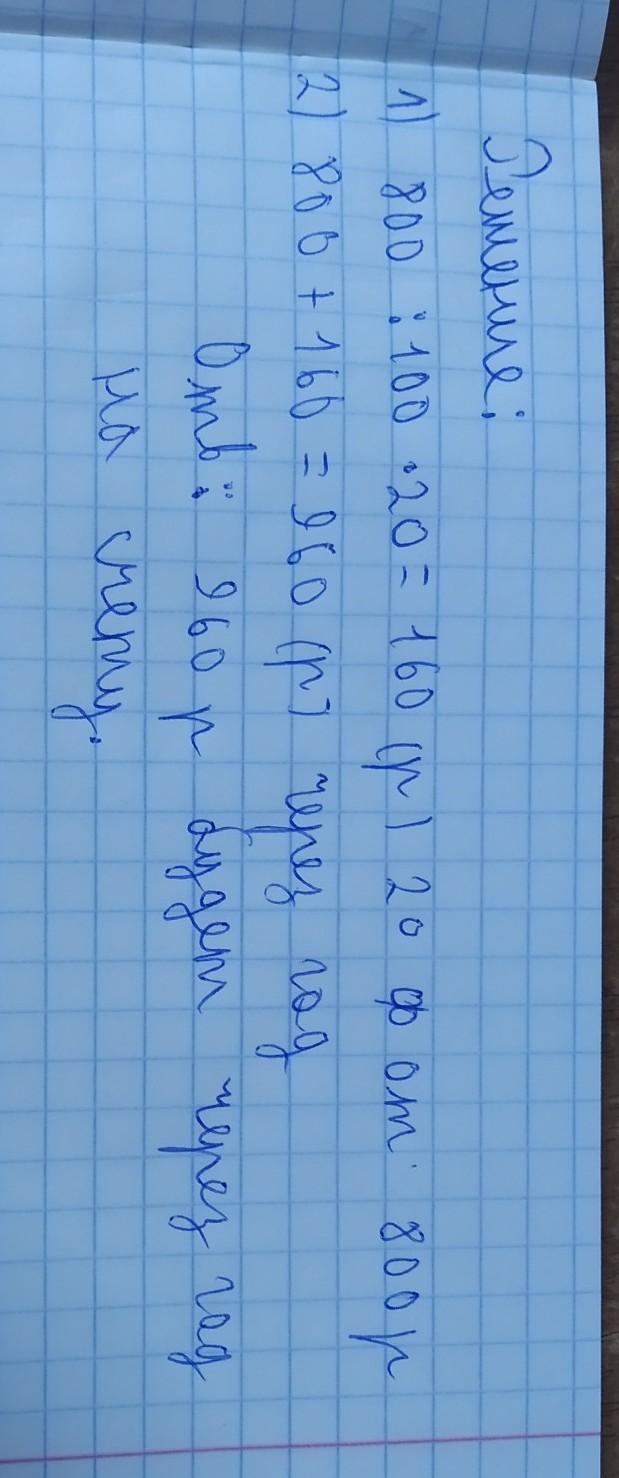 Решение:
1) 800 : 100 · 20 = 160 (р) 20 % от 800 р
2) 800 + 160 = 960 (р) через год
Отв: 960 р будет через год
на счету.